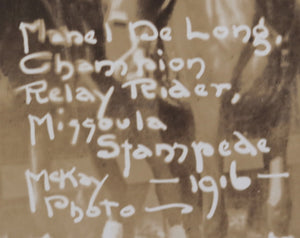 Mabel De Long,
Champion
Relay Rider,
Missoula
Stampede
McKay — 1916 —
Photo —